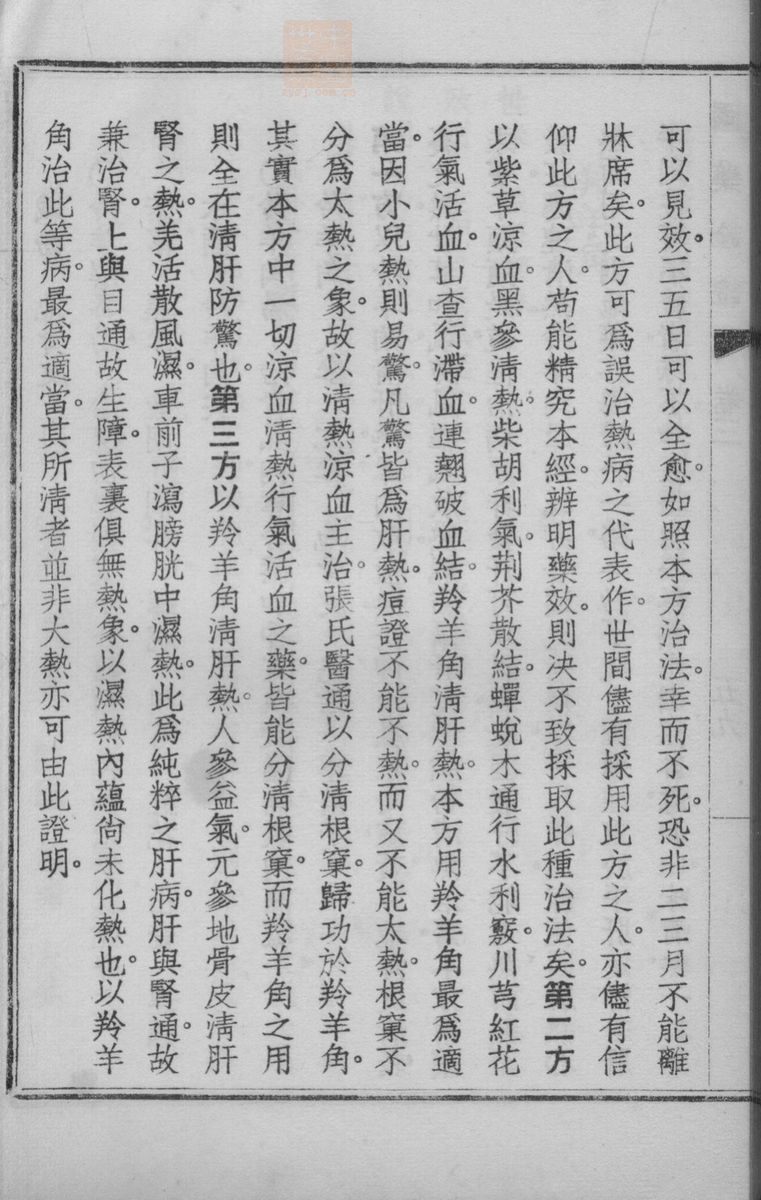 可以見效。三五日可以全愈。如照本方治法。幸而不死。恐非二三月不能離
牀席矣。此方可爲誤治熱病之代表作。世間儘有採用此方之人。亦儘有信
仰此方之人。苟能精究本經。辨明藥效。則決不致採取此種治法矣。第二方
以紫草涼血。黑參淸熱。柴胡利氣。荆芥散結。蟬蛻木通行水利竅。川芎紅花
行氣活血。山查行滯血。連翹破血結。羚羊角淸肝熱。本方用羚羊角最爲適
當。因小兒熱則易驚。凡驚皆爲肝熱。痘證不能不熱。而又不能太熱。根窠不
分爲太熱之象。故以淸熱涼血主治。張氏醫通以分淸根窠。歸功於羚羊角。
其實本方中一切涼血淸熱行氣活血之藥。皆能分淸根窠。而羚羊角之用
則全在淸肝防驚也。第三方以羚羊角淸肝熱。人參益氣。元參地骨皮淸肝
腎之熱。羌活散風濕。車前子瀉膀胱中濕熱。此爲純粹之肝病。肝與腎通。故
兼治腎。上與目通故生障。表裏俱無熱象。以濕熱內蘊尙未化熱也。以羚羊
角治此等病。最爲適當。其所淸者並非大熱亦可由此證明。